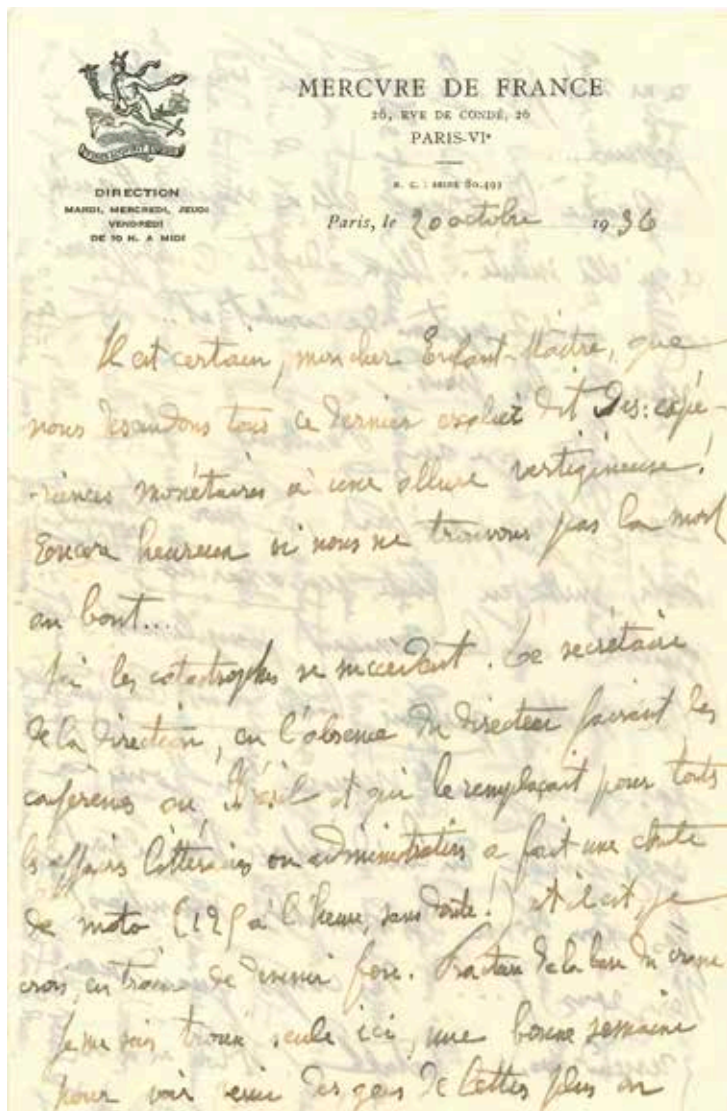 MERCVRE DE FRANCE
26, RVE DE CONDÉ, 26
PARIS-VIᵉ
R. C. : SEINE 80.493
DIRECTION
MARDI, MERCREDI, JEUDI
VENDREDI
DE 10 H. A MIDI
Paris, le 20 octobre 1936
Il est certain, mon cher Enfant-Maître, que
nous descendons tous ce dernier dit Des: expé-
-riences monétaires à une allure vertigineuse!
Encore heureux si nous ne trouvons pas la mort
au bout...
Ici les catastrophes se succèdent. Le secrétaire
de la direction, en l'absence du directeur faisant des
conférences au Brésil et qui le remplaçait pour toutes
les affaires littéraires ou administratives a fait une chute
de moto (125 à l'heure, sans doute!) et il est, je
crois, en train de devenir fou. Fracture de la base du crâne
Je me suis trouvée seule ici, une bonne semaine
pour voir venir des gens de lettres plus ou